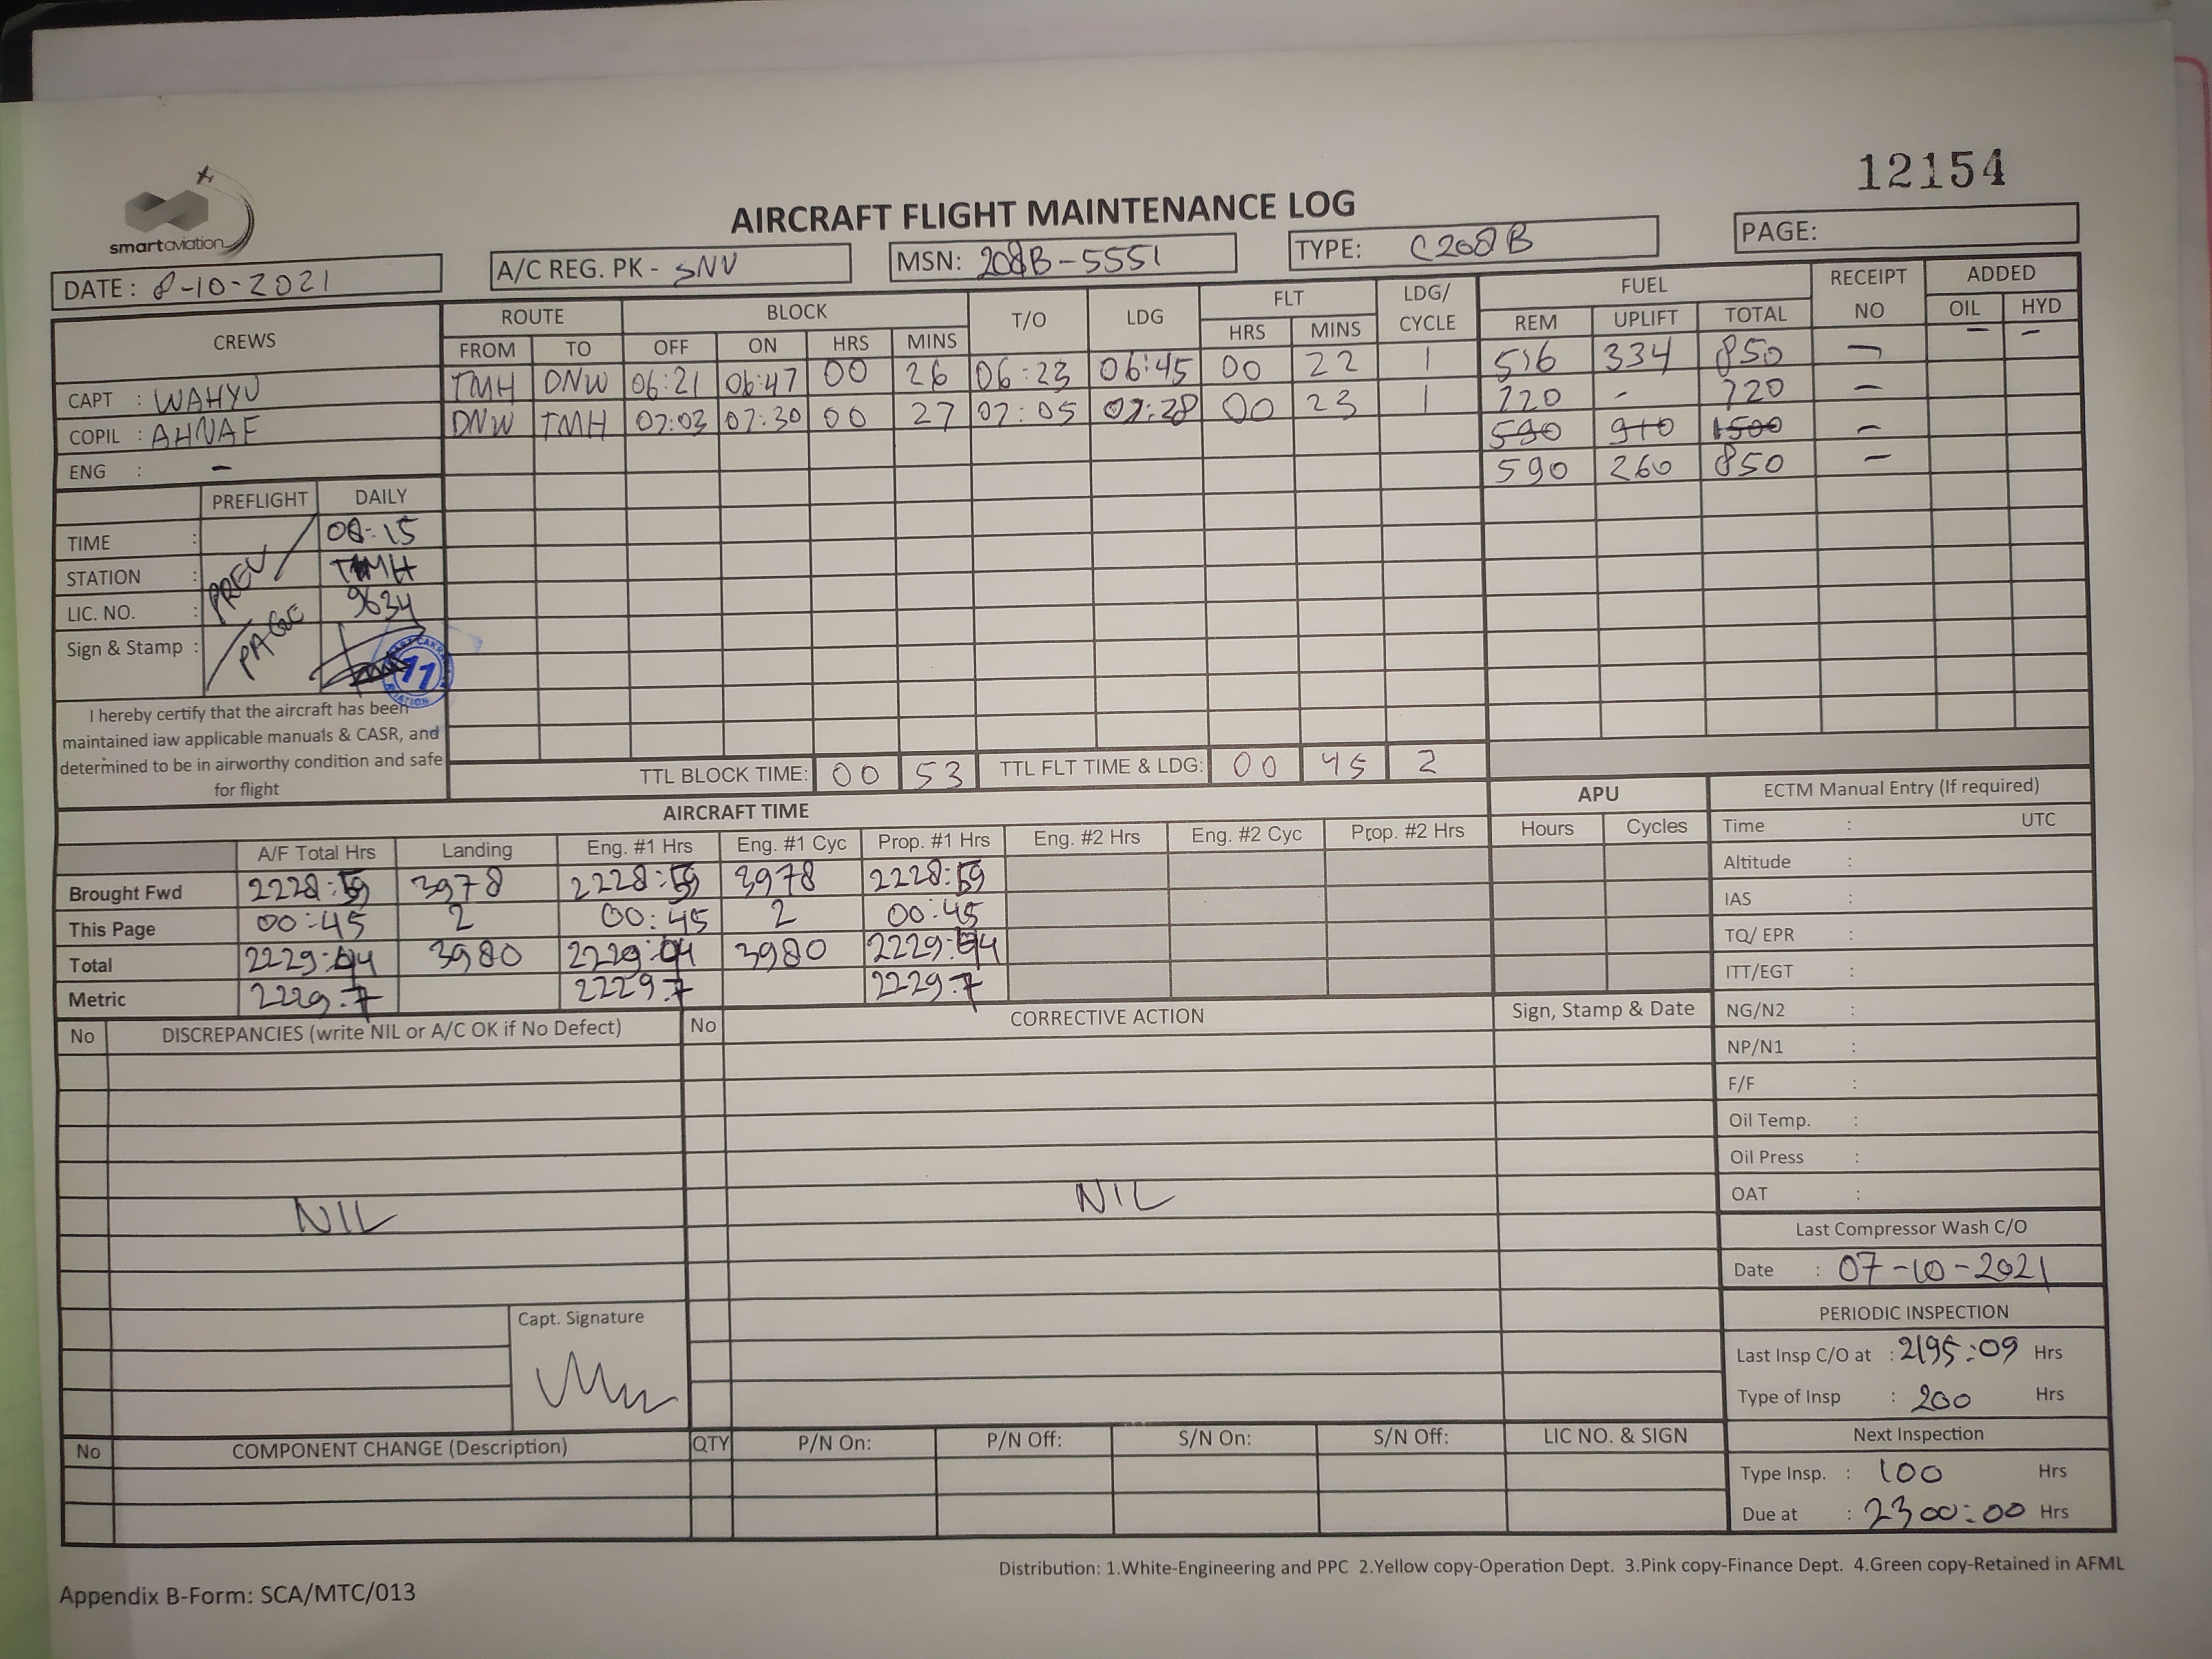 12154
smartaviation
AIRCRAFT FLIGHT MAINTENANCE LOG
DATE : 8-10-2021 A/C REG. PK - SNV MSN: 208B-5551 TYPE: C208B PAGE:
CREWS ROUTE BLOCK T/O LDG FLT LDG/ CYCLE FUEL RECEIPT NO ADDED
FROM TO OFF ON HRS MINS HRS MINS REM UPLIFT TOTAL OIL HYD
CAPT : WAHYU TMH DNW 06:21 06:47 00 26 06:23 06:45 00 22 1 516 334 850 - - -
COPIL : AHNAF DNW TMH 07:03 07:30 00 27 07:05 07:28 00 23 1 720 - 720 -
590 910 1500 -
ENG : - 590 260 850 -
PREFLIGHT DAILY
TIME : 08:15
STATION : TMH
LIC. NO. : 9634
Sign & Stamp :
PREV / PAGE
11
I hereby certify that the aircraft has been
maintained iaw applicable manuals & CASR, and
determined to be in airworthy condition and safe
for flight
TTL BLOCK TIME: 00 53 TTL FLT TIME & LDG: 00 45 2
AIRCRAFT TIME APU
A/F Total Hrs Landing Eng. #1 Hrs Eng. #1 Cyc Prop. #1 Hrs Eng. #2 Hrs Eng. #2 Cyc Prop. #2 Hrs Hours Cycles
Brought Fwd 2228:59 3978 2228:59 3978 2228:59
This Page 00:45 2 00:45 2 00:45
Total 2229: 3980 2229: 3980 2229:
Metric 2229.7 2229.7 2229.7
ECTM Manual Entry (If required)
Time : UTC
Altitude :
IAS :
TQ/ EPR :
ITT/EGT :
NG/N2 :
NP/N1 :
F/F :
Oil Temp. :
Oil Press :
OAT :
No DISCREPANCIES (write NIL or A/C OK if No Defect) No CORRECTIVE ACTION Sign, Stamp & Date
NIL NIL
Capt. Signature
Last Compressor Wash C/O
Date : 07-10-2021
PERIODIC INSPECTION
Last Insp C/O at : 2195:09 Hrs
Type of Insp : 200 Hrs
Next Inspection
Type Insp. : 100 Hrs
Due at : 2300:00 Hrs
No COMPONENT CHANGE (Description) QTY P/N On: P/N Off: S/N On: S/N Off: LIC NO. & SIGN
Distribution: 1.White-Engineering and PPC 2.Yellow copy-Operation Dept. 3.Pink copy-Finance Dept. 4.Green copy-Retained in AFML
Appendix B-Form: SCA/MTC/013